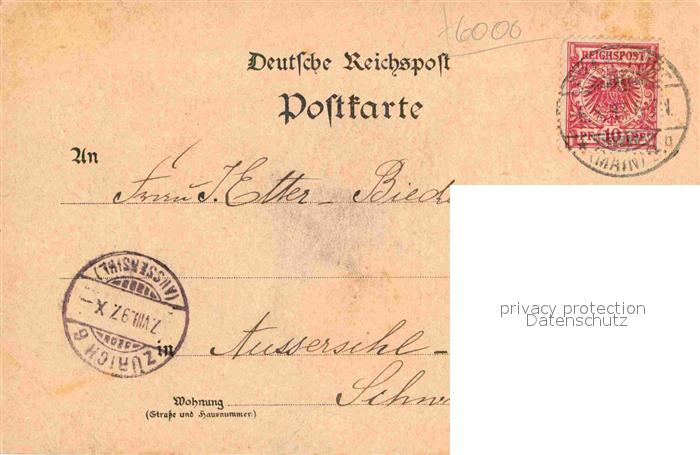 76000
Deutsche Reichspost
Postkarte
REICHSPOST
10
(MAIN)
An
Frau J. Etter - Biede
privacy protection
Datenschutz
(AUSSERSIHL)
7.VIII.97.X-
ZÜRICH 9
in Aussersihl -
Schw
Wohnung
(Straße und Hausnummer)